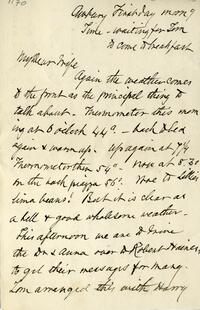 1170
Ambury First day morng
Time - waiting for Tom
to come to breakfast
My dear Wife
Again the weather comes
to the front as the principal thing to
talk about. Thermometer this morn
ing at 5 oclock 44° - back to bed
again & warm up. Up again at 7¼
Thermometer then 54°. Now at 8.30
on the back piazza 56°. Woe to Lillie's
lima beans! But it is clear as
a bell & good wholesome weather.
This afternoon we are to drive
the Drs & Anna over to Robert Haines,
to get their messages for Mary.
Tom arranged this with Harry